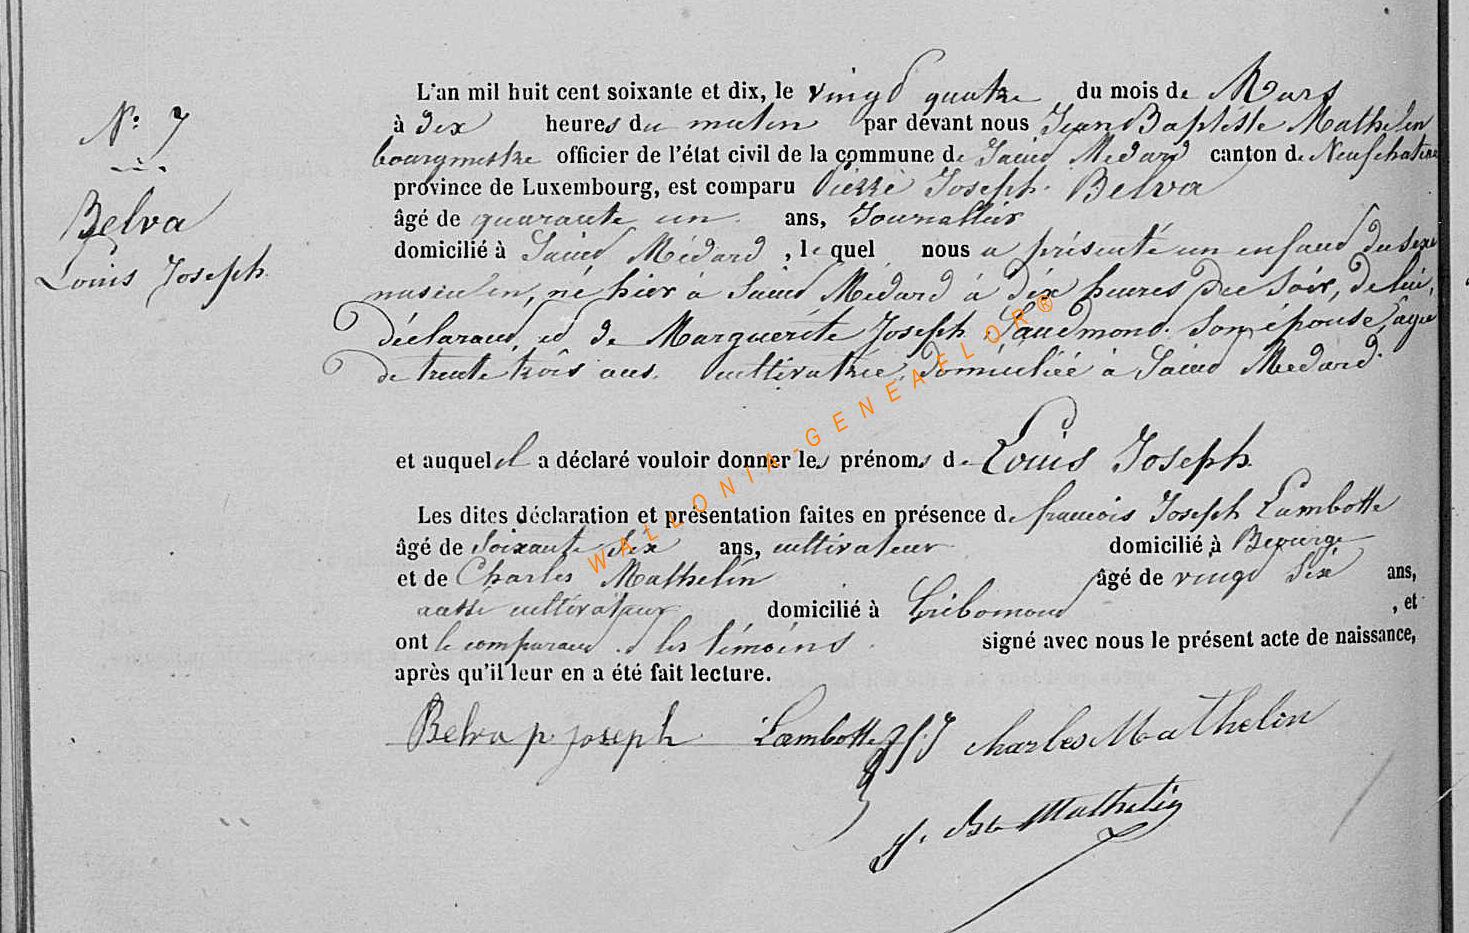 N° 7
Belva
Louis Joseph
L'an mil huit cent soixante et dix, le vingt quatre du mois de Mars
à dix heures du matin par devant nous Jean Baptiste Mathelin
bourgmestre officier de l'état civil de la commune de Saint Médard canton de Neufchateau
province de Luxembourg, est comparu Pierre Joseph Belva
âgé de quarante un ans, Journallier
domicilié à Saint Médard, lequel nous a présenté un enfant du sexe
masculin, né hier à Saint Médard à dix heures du soir, de lui,
déclarant, et de Marguerite Joseph Laudmond son épouse, agée
de trente trois ans, cultivatrice, domiciliée à Saint Médard.
et auquel il a déclaré vouloir donner les prénoms de Louis Joseph.
Les dites déclaration et présentation faites en présence de françois Joseph Lambotte
âgé de soixante six ans, cultivateur domicilié à
et de Charles Mathelin âgé de vingt six ans,
aussi cultivateur domicilié à Gribomont, et
ont le comparant et les témoins signé avec nous le présent acte de naissance,
après qu'il leur en a été fait lecture.
Belva p. joseph Lambotte f. J charles Mathelin
J. Bte Mathelin
WALLONIA-GENEAFLOR®